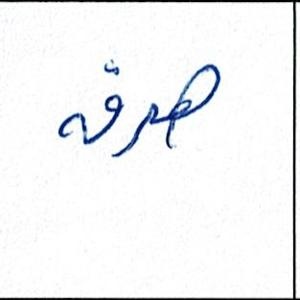 صرفه